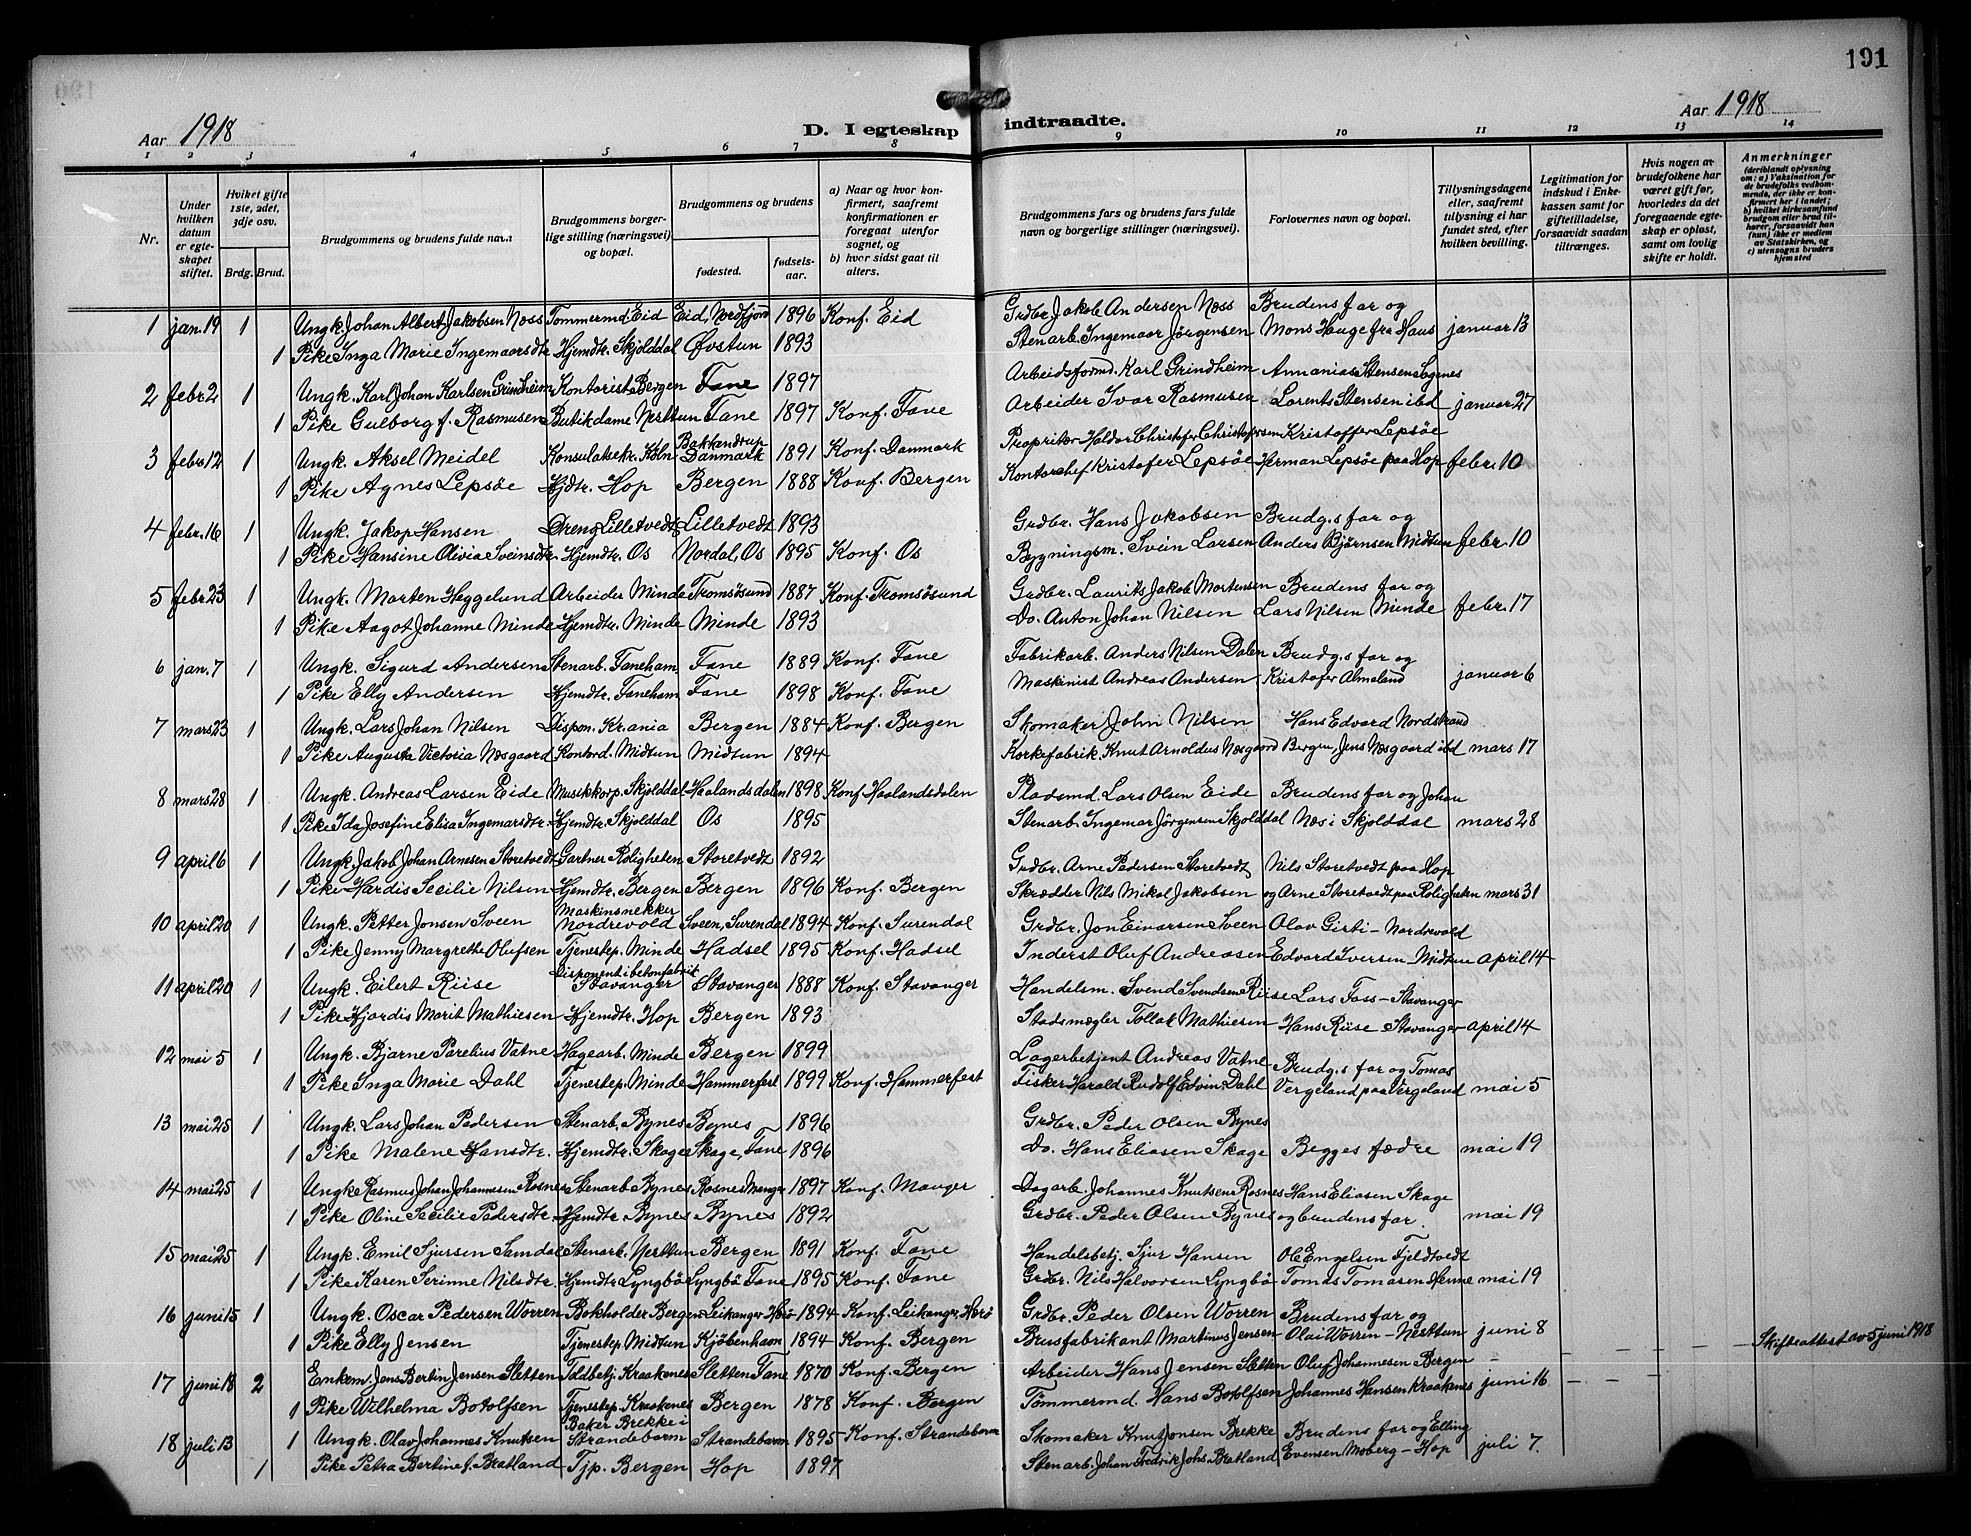 191
Aar 1918
D. I egteskap indtraadte.
Aar 1918
1 2 3 4 5 6 7 8 9 10 11 12 13 14
Nr.
Under hvilken datum er egteskapet stiftet.
Hviket gifte 1ste, 2det, 3dje osv.
Brdg. Brud.
Brudgommens og brudens fulde navn
Brudgommens borgerlige stilling (næringsvei) og bopæl.
Brudgommens og brudens
fødested.
fødselsaar.
a) Naar og hvor konfirmert, saafremt konfirmationen er foregaat utenfor sognet, og
b) hvor sidst gaat til alters.
Brudgommens fars og brudens fars fulde navn og borgerlige stillinger (næringsvei).
Forlovernes navn og bopæl.
Tillysningsdagene eller, saafremt tillysning ei har fundet sted, efter hvilken bevilling.
Legitimation for indskud i Enkekassen samt for giftetilladelse, forsaavidt saadan tiltrænges.
Hvis nogen av brudefolkene har været gift før, hvorledes da det foregaaende egteskap er opløst, samt om lovlig skifte er holdt.
Anmerkninger
(deriblandt oplysning om: a) Vaksination for de brudefolks vedkommende, der ikke er konfirmert her i landet; b) hvilket kirkesamfund brudgom eller brud tilhører, forsaavidt han (hun) ikke er medlem av Statskirken, og c) utensogns bruders hjemsted
1 jan. 19 1 Ungk. Johan Albert Jakobsen Næss Tømmermd. Eid Eid, Nordfjord 1896 Konf. Eid Grdbr. Jakob Andersen Næss Brudens far og
1 Pike Inga Marie Ingemaarsdtr. Hjemdtr. Skjolddal Øvstun 1893 Stenarb. Ingemaar Jørgensen Mons Hauge fra Haus januar 13
2 febr. 2 1 Ungk. Karl Johan Karlsen Grindheim Kontorist Bergen Fane 1897 Arbeidsformd. Karl Grindheim Annanias Stensen
1 Pike Gulborg f. Rasmusen Butikdame Nesttun Fane 1897 Konf. Fane Arbeider Ivar Rasmusen Lorents Stensen ibd januar 27
3 febr. 12 1 Ungk. Aksel Meidel Konsulatsekr. Köln Danmark 1891 Konf. Danmark Propritær Haldor Christofer Christofersen Kristoffer Lepsøe
1 Pike Agnes Lepsøe Hjdtr. Hop Bergen 1888 Konf. Bergen Kontorchef Kristofer Lepsøe Herman Lepsøe paa Hop febr. 10
4 febr. 16 1 Ungk. Jakop Hansen Dreng Lilletvedt Lilletvedt 1893 Grdbr. Hans Jakobsen Brudg.s far og
1 Pike Hansine Olivia Sveinsdtr. Hjemdtr. Os Nordal, Os 1895 Konf. Os Bygningsm. Svein Larsen Anders Bjørnsen Midtun febr. 10
5 febr. 23 1 Ungk. Morten Heggelund Arbeider Minde Tromsøsund 1887 Konf. Tromsøsund Grdbr. Laurits Jakob Mortensen Brudens far og
1 Pike Aagot Johanne Minde Hjemdtr. Minde Minde 1893 Do. Anton Johan Nilsen Lars Nilsen Minde febr. 17
6 jan. 7 1 Ungk. Sigurd Andersen Stenarb. Faneham. Fane 1889 Konf. Fane Fabrikarb. Anders Nilsen Dalen Brudg.s far og
1 Pike Elly Andersen Hjemdtr. Faneham. Fane 1898 Konf. Fane Maskinist Andreas Andersen Kristofer Almeland januar 6
7 mars 23 1 Ungk. Lars Johan Nilsen Dispon. Kr.ania Bergen 1884 Konf. Bergen Skomaker John Nilsen Hans Edvard Nordstrand
1 Pike Augusta Victoria Næsgaard Kontord. Midtun Midtun 1894 Korkefabrik. Knut Arnoldus Næsgaard Bergen, Jens Næsgaard ibd mars 17
8 mars 28 1 Ungk. Andreas Larsen Eide Musikkorp. Skjolddal Haalandsdalen 1898 Konf. Haalandsdalen Pladsmd. Lars Olsen Eide Brudens far og Johan
1 Pike Ida Josefine Elisa Ingemarsdtr. Hjemdtr. Skjolddal Os 1895 Stenarb. Ingemar Jørgensen Skjolddal Næs i Skjolddal mars 28
9 april 6 1 Ungk. Jakob Johan Arnesen Storetvedt Gartner Roligheten Storetvedt 1892 Grdbr. Arne Pedersen Storetvedt Nils Storetvedt paa Hop
1 Pike Hardis Secilie Nilsen Hjemdtr. Bergen Bergen 1896 Konf. Bergen Skrædder Nils Mikal Jakobsen og Arne Storetvedt paa Roligheten mars 31
10 april 20 1 Ungk. Petter Jonsen Sveen Maskinsnekker Nordrevold Sveen, Surendal 1894 Konf. Surendal Grdbr. Jon Einarsen Sveen Olav Gisti - Nordrevold
1 Pike Jenny Margrethe Olufsen Tjenestep. Minde Hadsel 1895 Konf. Hadsel Inderst Oluf Andreasen Edvard Iversen - Midtun april 14
11 april 20 1 Ungk. Eilert Riise Disponent i betonfabrik Stavanger Stavanger 1888 Konf. Stavanger Handelsm. Svend Svendsen Riise Lars Foss - Stavanger
1 Pike Hjordis Marit Mathiesen Hjemdtr. Hop Bergen 1893 Stadsmægler Tollak Mathiesen Hans Riise Stavanger april 14
12 mai 5 1 Ungk. Bjarne Parelius Vatne Hagearb. Minde Bergen 1899 Lagerbetjent Andreas Vatne Brudg.s far og Tomas
1 Pike Inga Marie Dahl Tjenestep. Minde Hammerfest 1899 Konf. Hammerfest Fisker Harald Rudolf Edvin Dahl Vergeland paa Vergeland mai 5
13 mai 25 1 Ungk. Lars Johan Pedersen Stenarb. Bynes Bynes 1896 Grdbr. Peder Olsen Bynes
1 Pike Malene Hansdtr. Hjemdtr. Skage Skage, Fane 1896 Do. Hans Eliasen Skage Begges fædre mai 19
14 mai 25 1 Ungk. Rasmus Johan Johannesen Rosnes Stenarb Bynes Rosnes Manger 1897 Konf. Manger Dagarb. Johannes Knutsen Rosnes Hans Eliasen Skage
1 Pike Oline Secilie Pedersdtr. Hjemdtr Bynes Bynes 1892 Grdbr. Peder Olsen Bynes og brudens far. mai 19
15 mai 25 1 Ungk. Emil Sjursen Samdal Stenarb. Nesttun Bergen 1891 Konf. Fane Handelsbetj. Sjur Hansen Ole Engelsen Fjeldtvedt
1 Pike Karen Serinne Nilsdtr. Hjemdtr Lyngbö Lyngbö Fane 1895 Konf. Fane Grdbr. Nils Halvorsen Lyngbö Tomas Tomasen Henne mai 19
16 juni 15 1 Ungk. Oscar Pedersen Worren Bokholder Bergen Leikanger, Herö 1894 Konf. Leikanger, Herö Grdbr. Peder Olsen Worren Brudens far og
1 Pike Elly Jensen Tjenestep. Midtun Kjöbenhavn 1894 Konf. Bergen Brusfabrikant Martinus Jensen Olai Worren - Nesttun juni 8
17 juni 18 2 Enkem. Jens Bertin Jensen Sletten Toldbetj. Kraakenes Sletten Fane 1870 Konf. Bergen Arbeider Hans Jensen Sletten Oluf Johannesen Bergen Skifteattest av 5 juni 1918
1 Pike Wilhelma Botolfsen Tjenestep. Kraakenes Bergen 1878 Konf. Bergen Tømmermd. Hans Botolfsen Johannes Hansen Kraakenes juni 16
18 juli 13 1 Ungk. Olav Johannes Knutsen Baker Brekke i Strandebarm Strandebarm 1895 Konf. Strandebarm Skomaker Knut Jonsen Brekke Brudens far og Elling
1 Pike Petra Bertine f. Bratland Tjp. Bergen Hop 1897 Stenarb. Johan Fredrik Johs. Bratland Evensen Moberg - Hop juli 7.